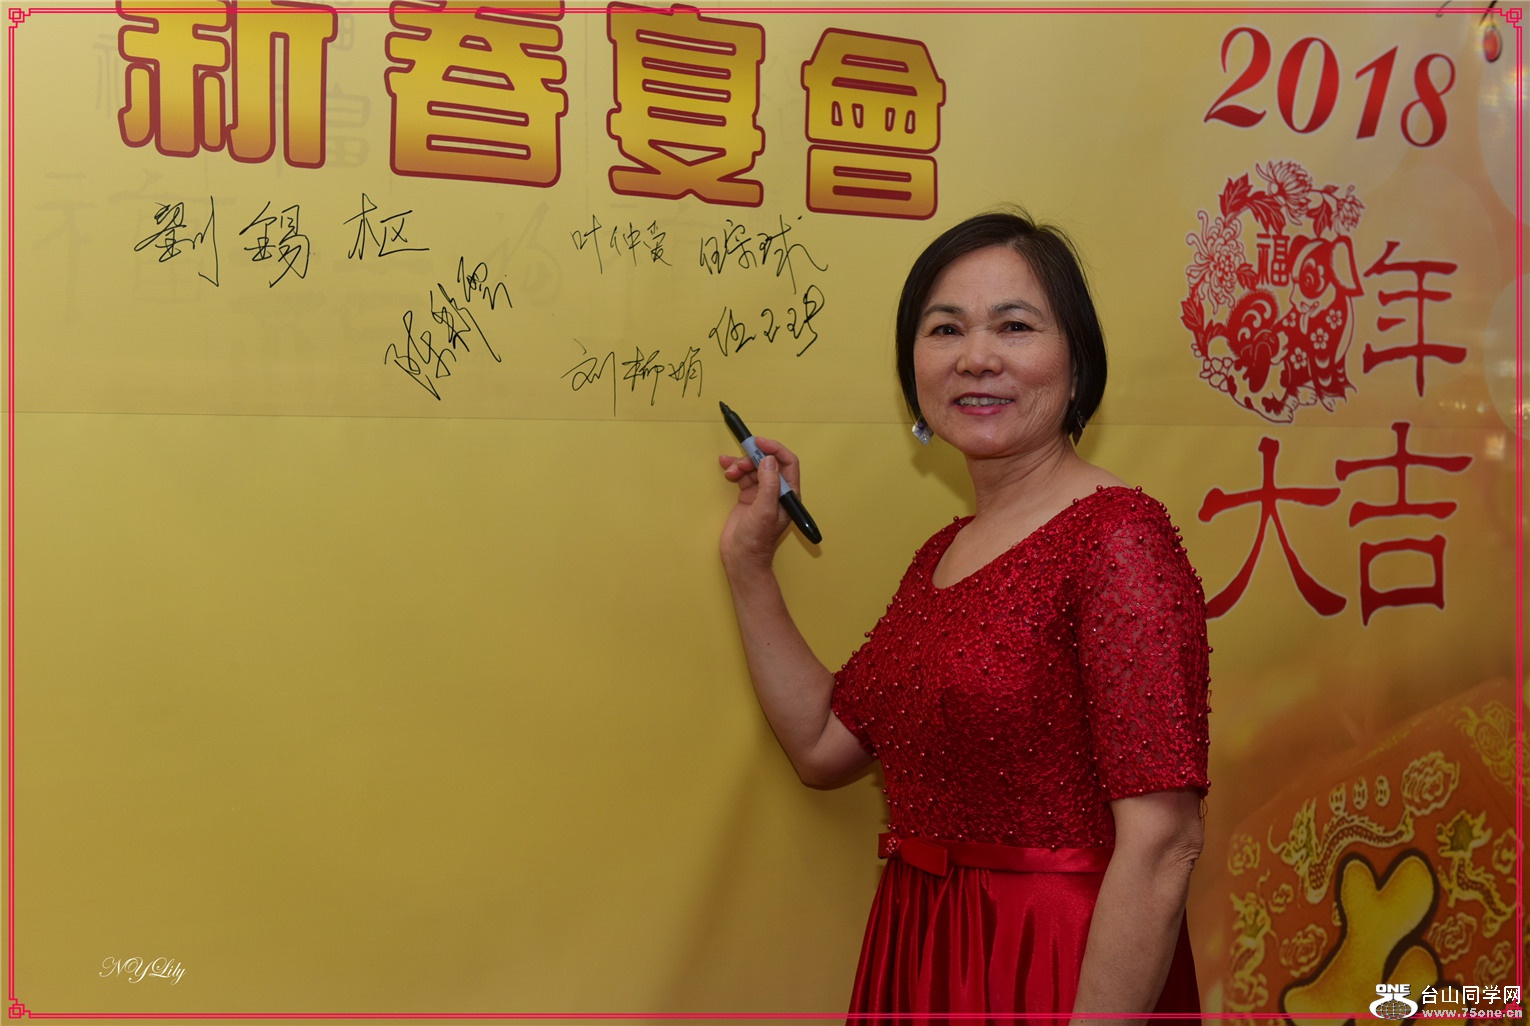 新春宴會
2018
福
年
大吉
劉錫枢
叶仲爱
刘柳娟
伍玉珍
NYLily
ONE
台山同学网
www.75one.cn